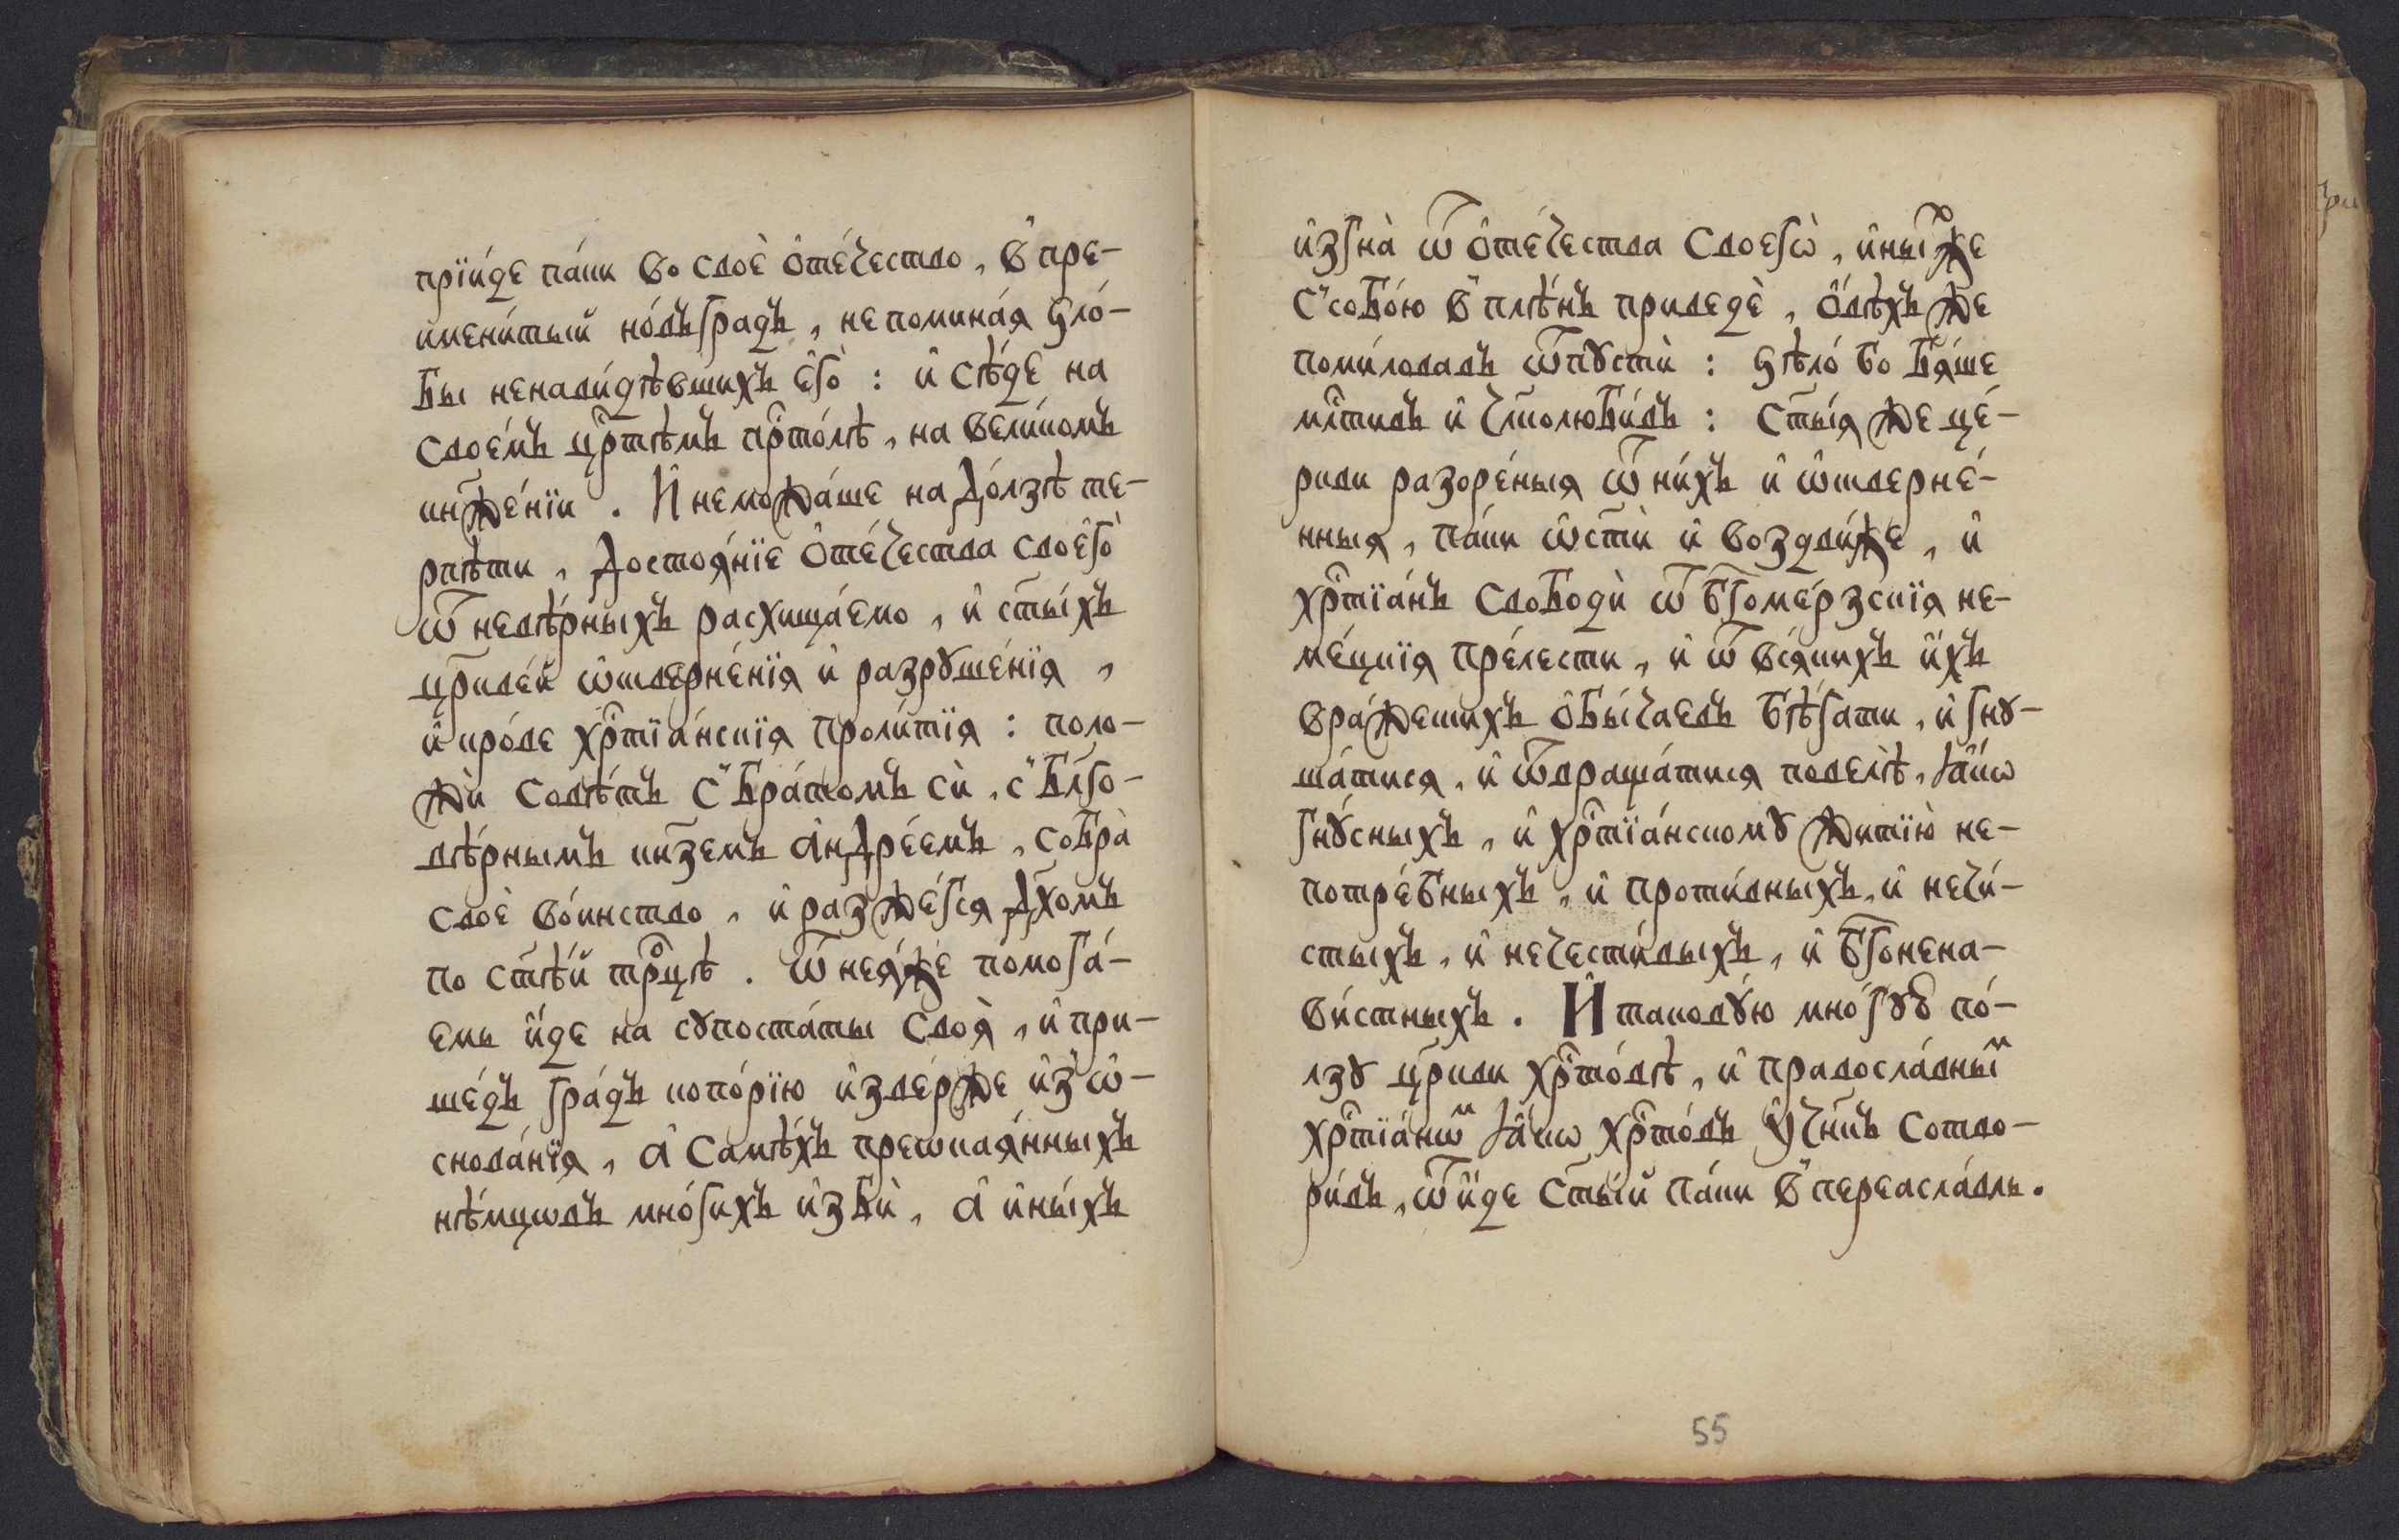 прїи́де па́ки во своѐ ѻ҆те́чество, в̾ пре-
имени́тый но́въградъ, непомина́я ѕло́-
бы ненави́дѣвшихъ є҆го̀ : и҆ сѣ́де на
свое́мъ цр҇тѣмъ пр҇то́лѣ, на вели́комъ
кн҃же́нїи . И҆ неможа́ше на до́лзѣ те-
рпѣти, достоя́нїе ѻ҆те́чества своего̀
ѿ невѣ́рныхъ расхища́емо, и҆ ст҃ы́хъ
цр҃кве́й ѡ҆тверне́нїя и҆ разрꙋше́нїя,
и҆ кро́ве хр҇тїа́нскїя проли́тїя : поло-
жѝ совѣ́тъ с̾ бра́томъ сѝ, с̾ бл҃го-
вѣ́рнымъ кн҃земъ а҆ндре́емъ, собра̀
своѐ во́инство, и҆ разже́гся дх҃омъ
по ст҃ѣ́й тр҇оцѣ . ѿ нея́же помога́-
емь и҆́де на сꙋпоста́ты своя̀, и҆ при-
ше́дъ гра́дъ копо́рїю и҆зве́рже и҆з̾ ѡ҆-
снова́нїя, а҆ самѣ́хъ преѡкая́нныхъ
нѣ́мцѡвъ мно́гихъ и҆збѝ, а҆ и҆ны́хъ
и҆згна̀ ѿ ѻ҆те́чества своегѡ̀, и҆ны́хже
с̾ собо́ю в̾ плѣ́нъ приведѐ, ѻ҆вѣ́хъ же
поми́ловавъ ѿпꙋстѝ : ѕѣло́ бо бя́ше
мл҇тивъ и҆ чл҃колюби́въ : ст҃ы́я же це́-
ркви разоре́ныя ѿ ни́хъ и҆ ѡ҆тверне́-
нныя, па́ки ѡ҆ст҃ѝ и҆ воздви́же, и҆
хр҇тїа́нъ свободѝ ѿ бг҃оме́рзскїя не-
ме́цкїя пре́лести, и҆ ѿ вся́кихъ и҆́хъ
вра́жешихъ ѻ҆бы́чаевъ бѣ́гати, и҆ гнꙋ-
ша́тися, и҆ ѿвраща́тися повелѣ̀, ꙗ҆́кѡ
гнꙋ́сныхъ, и҆ хр҇тїа́нскомꙋ житїю̀ не-
потре́бныхъ, и҆ проти́вныхъ, и҆ нечи́-
стыхъ, и҆ нечести́выхъ, и҆ бг҃онена-
ви́стныхъ . И҆ такову́ю мно́гꙋю по́-
лзꙋ цр҃кви хр҇то́вѣ, и҆ правосла́вны̑м
хр҇тїа́нѡм ꙗ҆́кѡ хр҇то́въ ᲂу҆чн҃къ сотво-
ри́въ, ѿи҆́де ст҃ы́й па́ки в̾ переасла́вль.
55